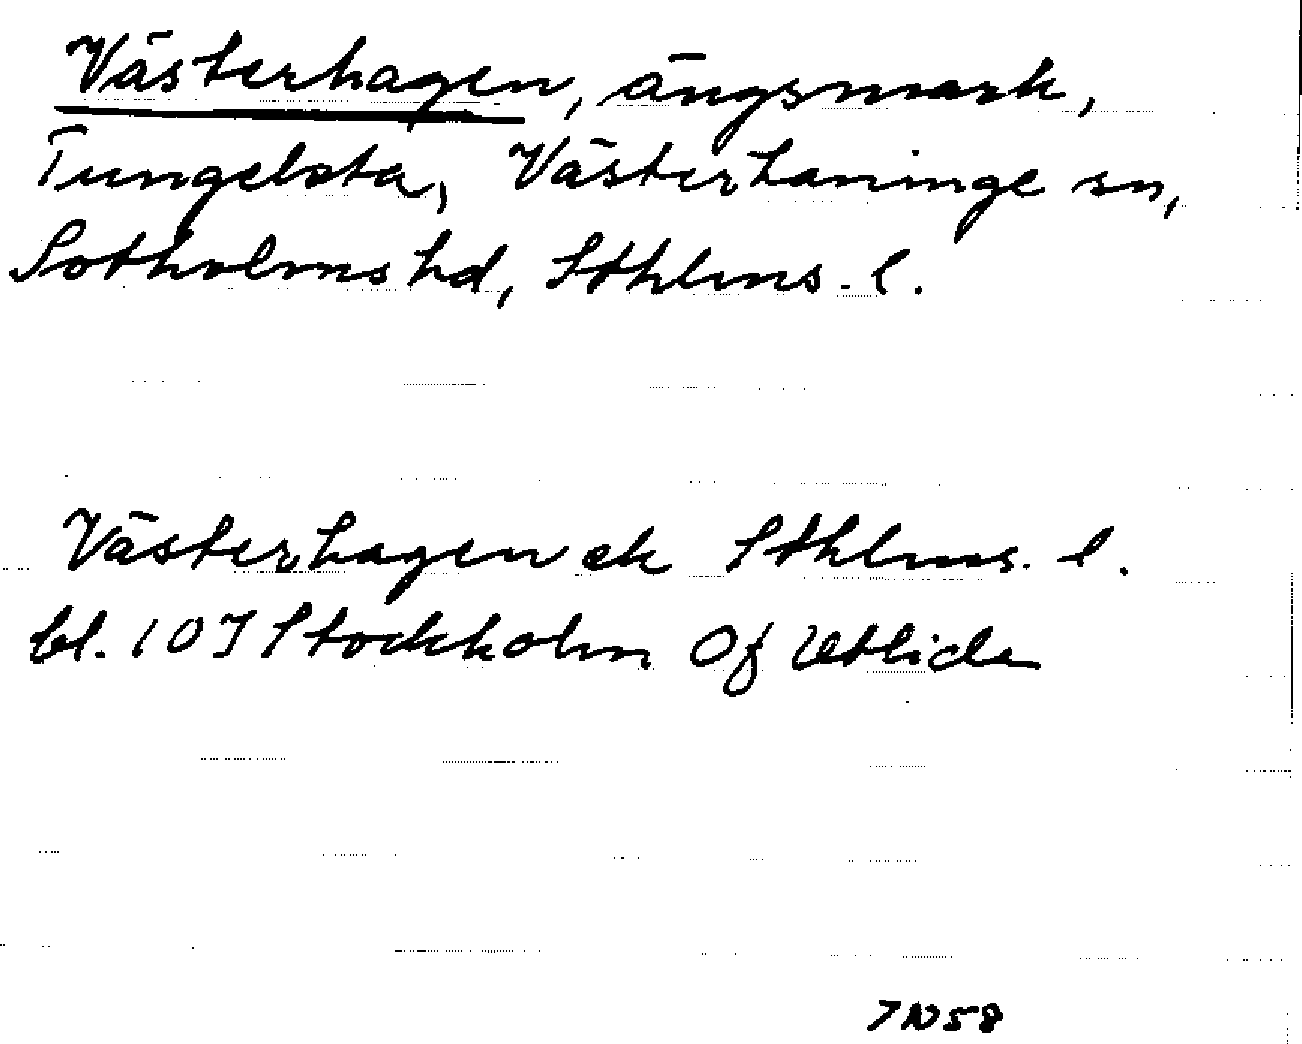 Västerhagen, ängsmark,
Tungelsta, Västerhaninge sn,
Sotholms hd, Sthlms. l.
Västerhagen ek Sthlms. l.
bl. 10 I Stockholm Of Utlida
7 N 58